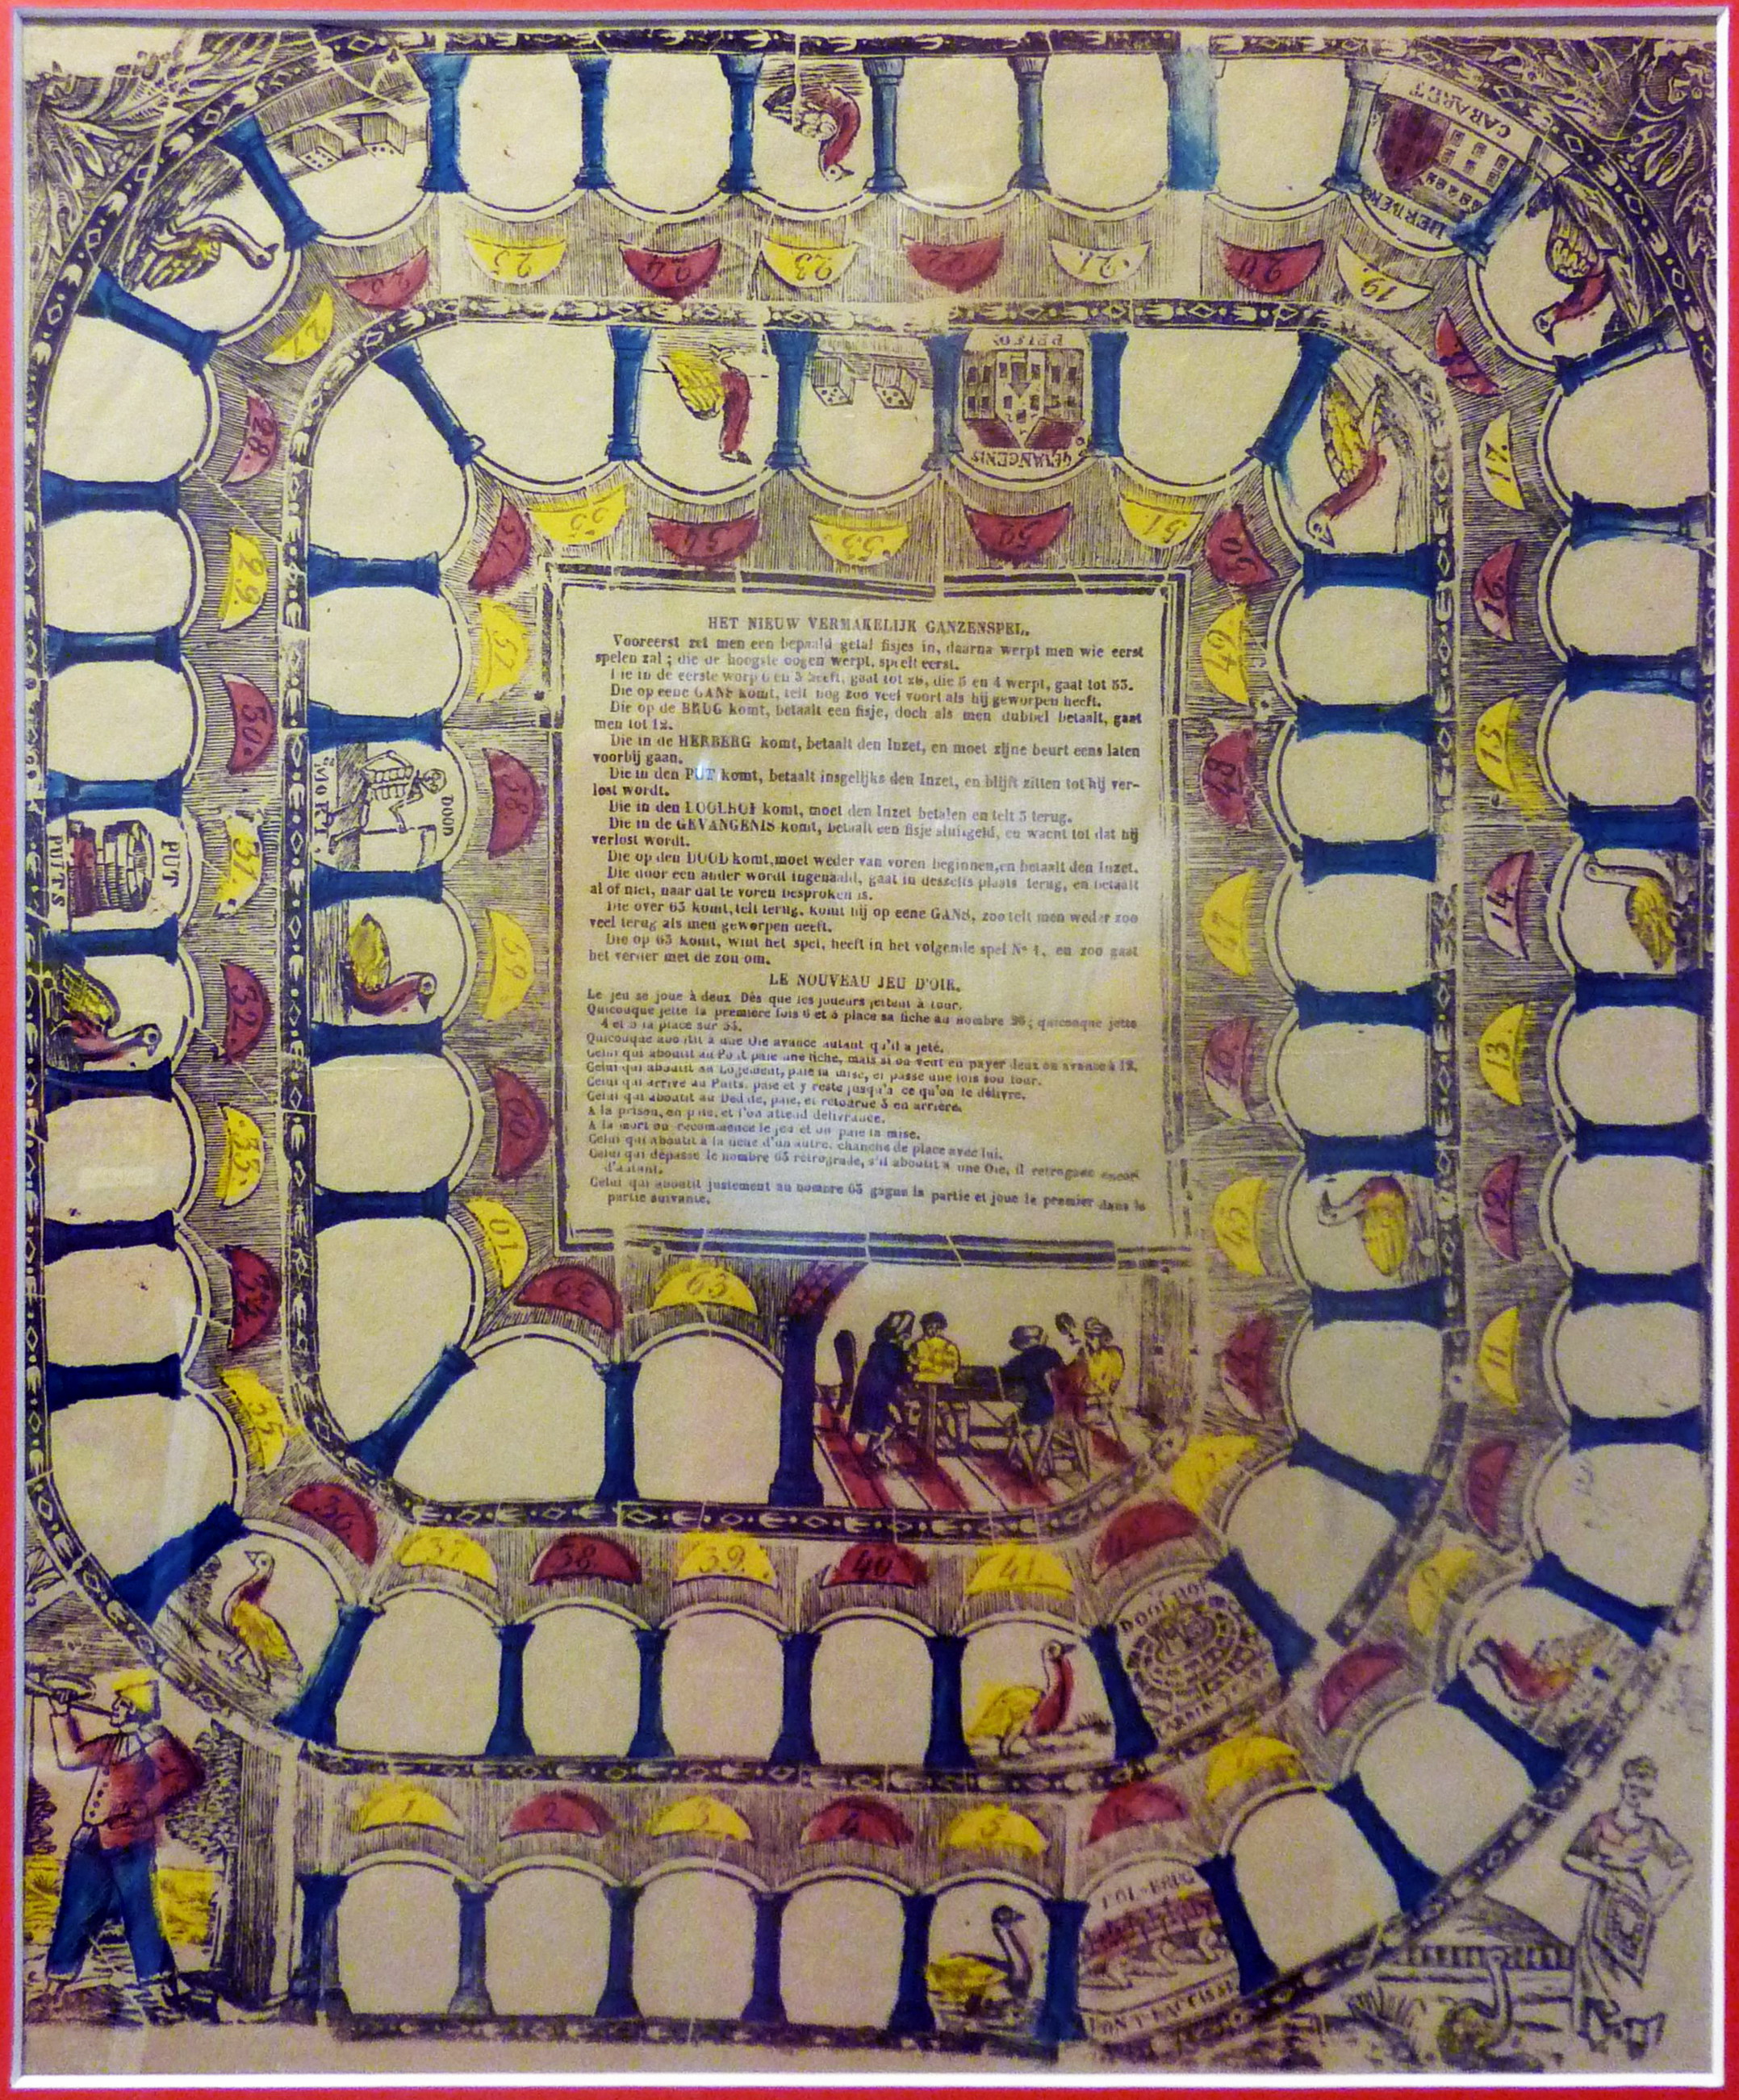 HET NIEUW VERMAKELIJK GANZENSPEL.
Vooreerst zet men een bepaald getal fisjes in, daarna werpt men wie eerst
spelen zal ; die de hoogste oogen werpt, speelt eerst.
Die in de eerste worp 6 en 3 heeft, gaat tot 26, die 5 en 4 werpt, gaat tot 53.
Die op eene GANS komt, telt nog zoo veel voort als hij geworpen heeft.
Die op de BRUG komt, betaalt een fisje, doch als men dubbel betaalt, gaat
men tot 12.
Die in de HERBERG komt, betaalt den Inzet, en moet zijne beurt eens laten
voorbij gaan.
Die in den PUT komt, betaalt insgelijks den Inzet, en blijft zitten tot hij ver-
lost wordt.
Die in den DOOLHOF komt, moet den Inzet betalen en telt 3 terug.
Die in de GEVANGENIS komt, betaalt een fisje sluitgeld, en wacht tot dat hij
verlost wordt.
Die op den DOOD komt, moet weder van voren beginnen, en betaalt den Inzet.
Die door een ander wordt ingehaald, gaat in deszelfs plaats terug, en betaalt
al of niet, naar dat te voren besproken is.
Die over 63 komt, telt terug, komt hij op eene GANS, zoo telt men weder zoo
veel terug als men geworpen heeft.
Die op 63 komt, wint het spel, heeft in het volgende spel No 1, en zoo gaat
het verder met de zon om.
LE NOUVEAU JEU D'OIE.
Le jeu se joue à deux Dés que les joueurs jettent à tour.
Quiconque jette la première fois 6 et 3 place sa fiche au nombre 26 ; quiconque jette
4 et 5 la place sur 53.
Quiconque aboutit à une Oie avance autant qu'il a jeté.
Celui qui aboutit au Pont paie une fiche, mais si on veut en payer deux on avance à 12.
Celui qui aboutit au Logement, paie la mise, et passe une fois son tour.
Celui qui arrive au Puits, paie et y reste jusqu'à ce qu'on le délivre.
Celui qui aboutit au Dédale, paie, et retourne 3 en arrière.
A la prison, on paie, et l'on attend délivrance.
A la mort on recommence le jeu et on paie la mise.
Celui qui aboutit à la fiche d'un autre, change de place avec lui.
Celui qui dépasse le nombre 63 rétrograde, s'il aboutit à une Oie, il rétrograde encore
d'autant.
Celui qui aboutit justement au nombre 63 gagne la partie et joue le premier dans la
partie suivante.
1
2
3
4
5
6
7
8
9
10
11
12
13
14
15
16
17
18
19
20
21
22
23
24
25
26
27
28
29
30
31
32
33
34
35
36
37
38
39
40
41
43
44
45
46
47
48
49
50
51
52
53
54
55
56
57
58
59
60
61
62
63
HERBERG
CABARET
PUT
PUITS
DOOLHOF
GEVANGENIS
PRISON
DOOD
MORT